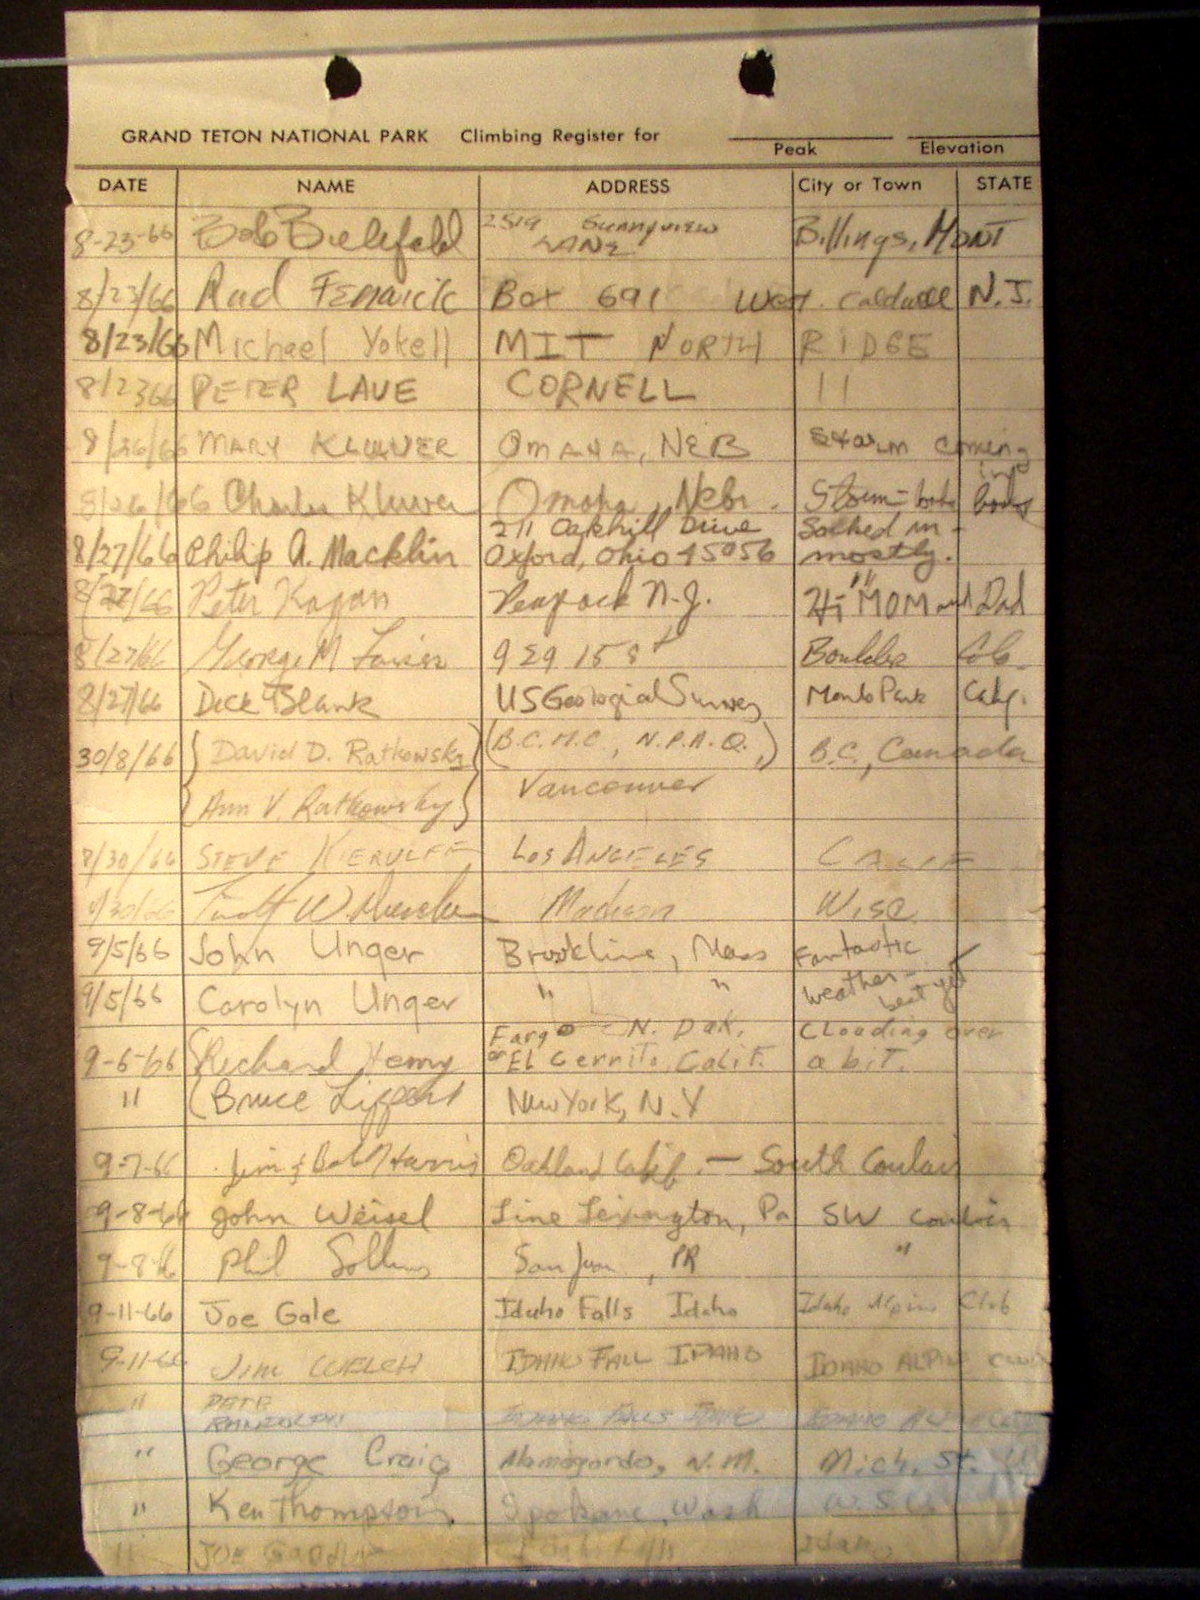 GRAND TETON NATIONAL PARK Climbing Register for
Peak Elevation
DATE NAME ADDRESS City or Town STATE
8-23-66 Bob Bielefeld 2519 Sunnyview LANE Billings, MONT
8/23/66 Rad Fenwick Box 691 West Caldwell N.J.
8/23/66 Michael Yokell MIT NORTH RIDGE
8/23 66 PETER LAVE CORNELL "
8/26/66 MARY KLUVER OMAHA, NEB Storm coming in
8/26/66 Charles Kluver Omaha, Nebr. Storm
8/27/66 Philip A. Macklin 211 Oakhill Drive Oxford, Ohio 45056 Socked in - mostly.
8/27/66 Peter Kagan Peapack N.J. Hi "MOM" and Dad
8/27/66 George M 929 15 st Boulder Colo.
8/27/66 Dick Blank US Geological Survey Menlo Park Calif.
30/8/66 { David D. Ratkowsky } (B.C.M.C., N.P.A.Q.,) B.C., Canada
{ Ann V. Ratkowsky } Vancouver
8/30/66 STEVE KIERULFF LOS ANGELES CALIF
8/30/66 W. Madison Wisc.
9/5/66 John Unger Brookline, Mass Fantastic
9/5/66 Carolyn Unger " " weather - best yet
9-6-66 Richard Henry Fargo - N. Dak. or El Cerrito, Calif. Clouding over a bit.
" Bruce Lippert New York, N.Y
9-7-66 Jim & Bob Harris Oakland Calif. — South Couloir
9-8-66 John Weisel Line Lexington, Pa SW Couloir
9-8-66 Phil Sollins San Juan, PR "
9-11-66 Joe Gale Idaho Falls Idaho Idaho Alpine Club
9-11-66 JIM WELCH IDAHO FALL IDAHO IDAHO ALPINE CLUB
" PETE IDAHO FALLS IDAHO
" George Craig Alamogordo, N.M. Mich. St. U
" Ken Thompson Spokane, Wash W.S.U.
" JOE